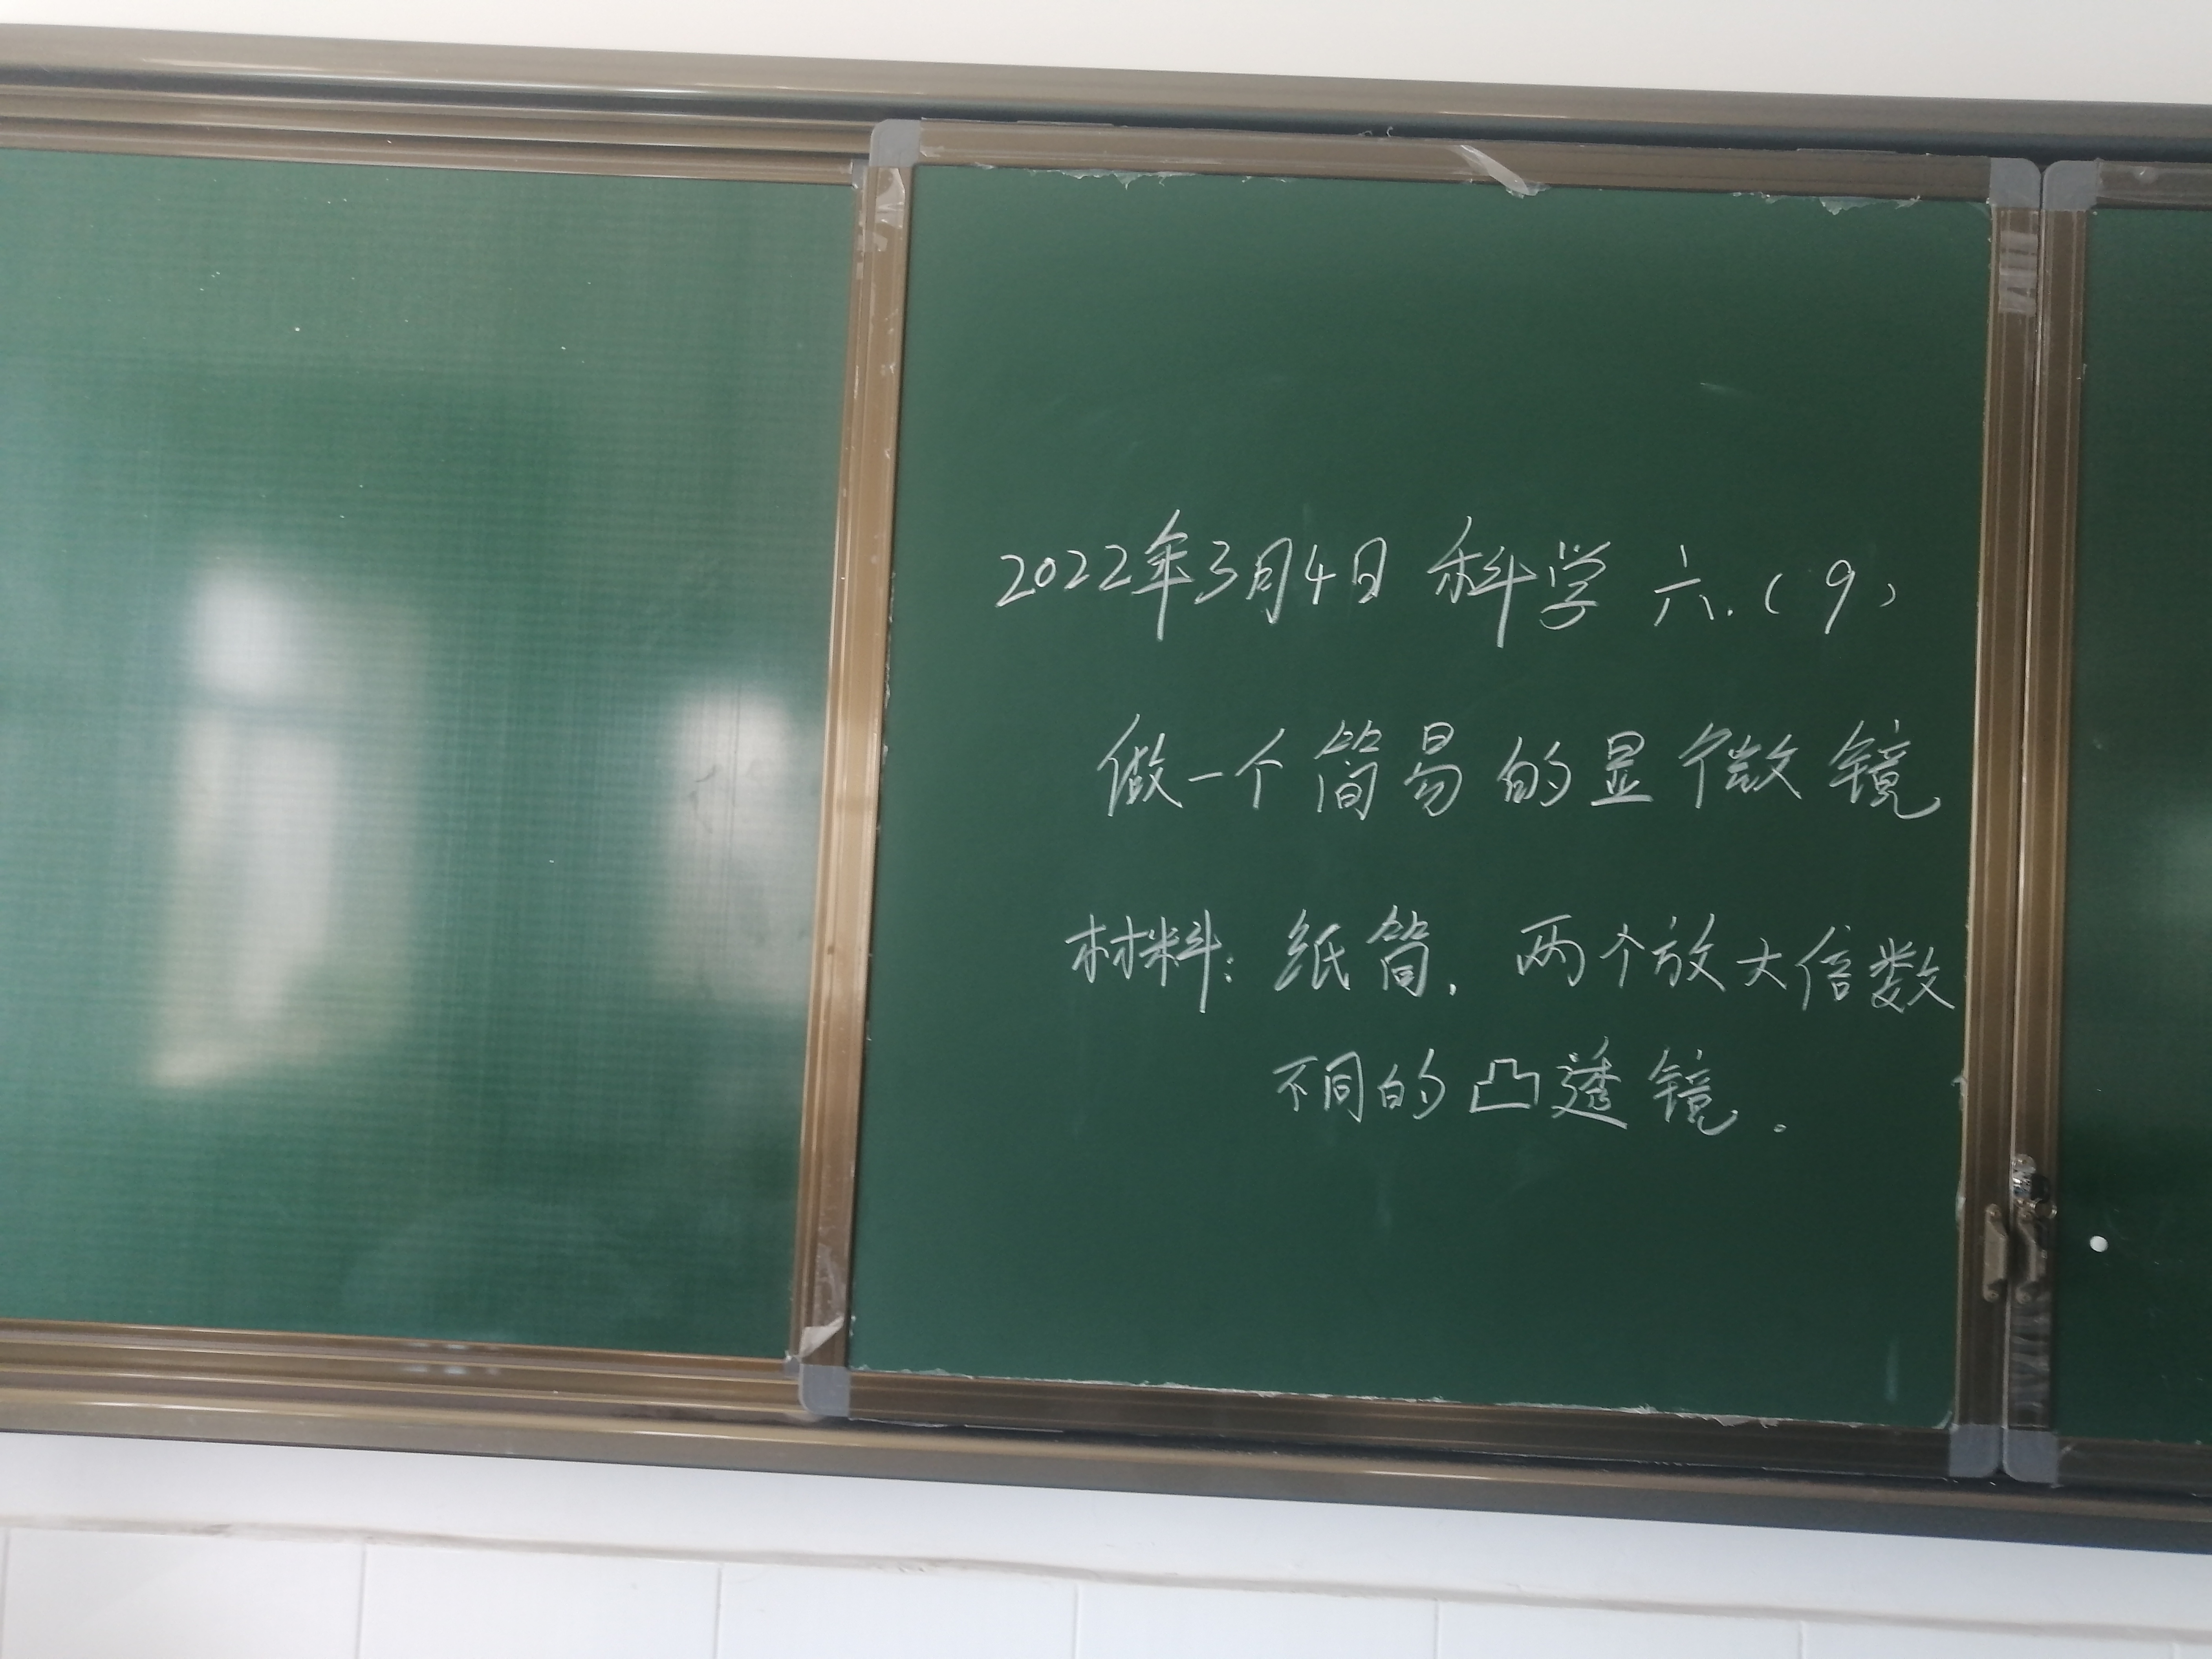 2022年3月4日 科学 六.(9)
做一个简易的显微镜
材料:纸筒.两个放大倍数
不同的凸透镜.